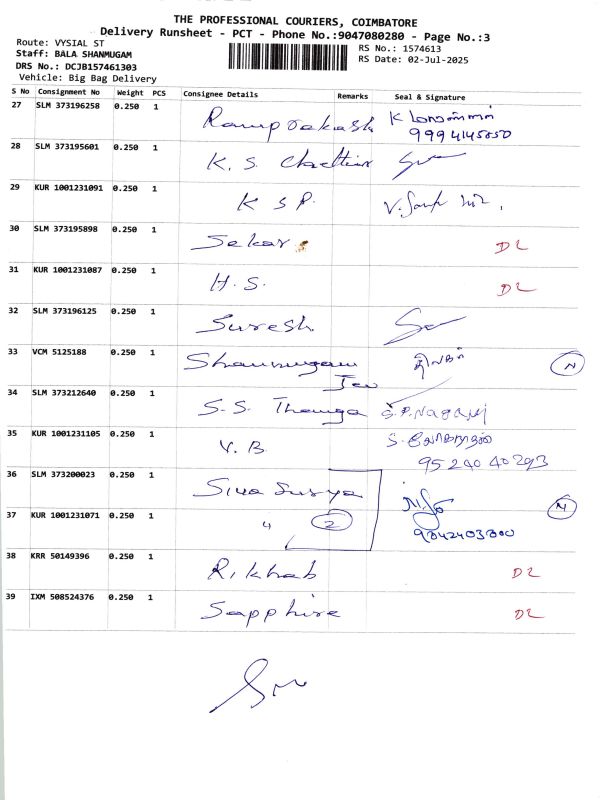 THE PROFESSIONAL COURIERS, COIMBATORE
Delivery Runsheet - PCT - Phone No.:9047080280 - Page No.:3
Route: VYSIAL ST
RS No.: 1574613
Staff: BALA SHANMUGAM
RS Date: 02-Jul-2025
DRS No.: DCJB157461303
Vehicle: Big Bag Delivery
S No Consignment No Weight PCS Consignee Details Remarks Seal & Signature
27 SLM 373196258 0.250 1 Ramprakash K
9994145050
28 SLM 373195601 0.250 1 K. S. Chettiar
29 KUR 1001231091 0.250 1 K S P.
30 SLM 373195898 0.250 1 Sekar DL
31 KUR 1001231087 0.250 1 H. S. DL
32 SLM 373196125 0.250 1 Suresh
33 VCM 5125188 0.250 1 Shanmugam N
34 SLM 373212640 0.250 1 S. S.
35 KUR 1001231105 0.250 1 V. B.
95240 40293
36 SLM 373200023 0.250 1 Siva Surya N
37 KUR 1001231071 0.250 1 2
38 KRR 50149396 0.250 1 DL
39 IXM 508524376 0.250 1 Sapphire DL